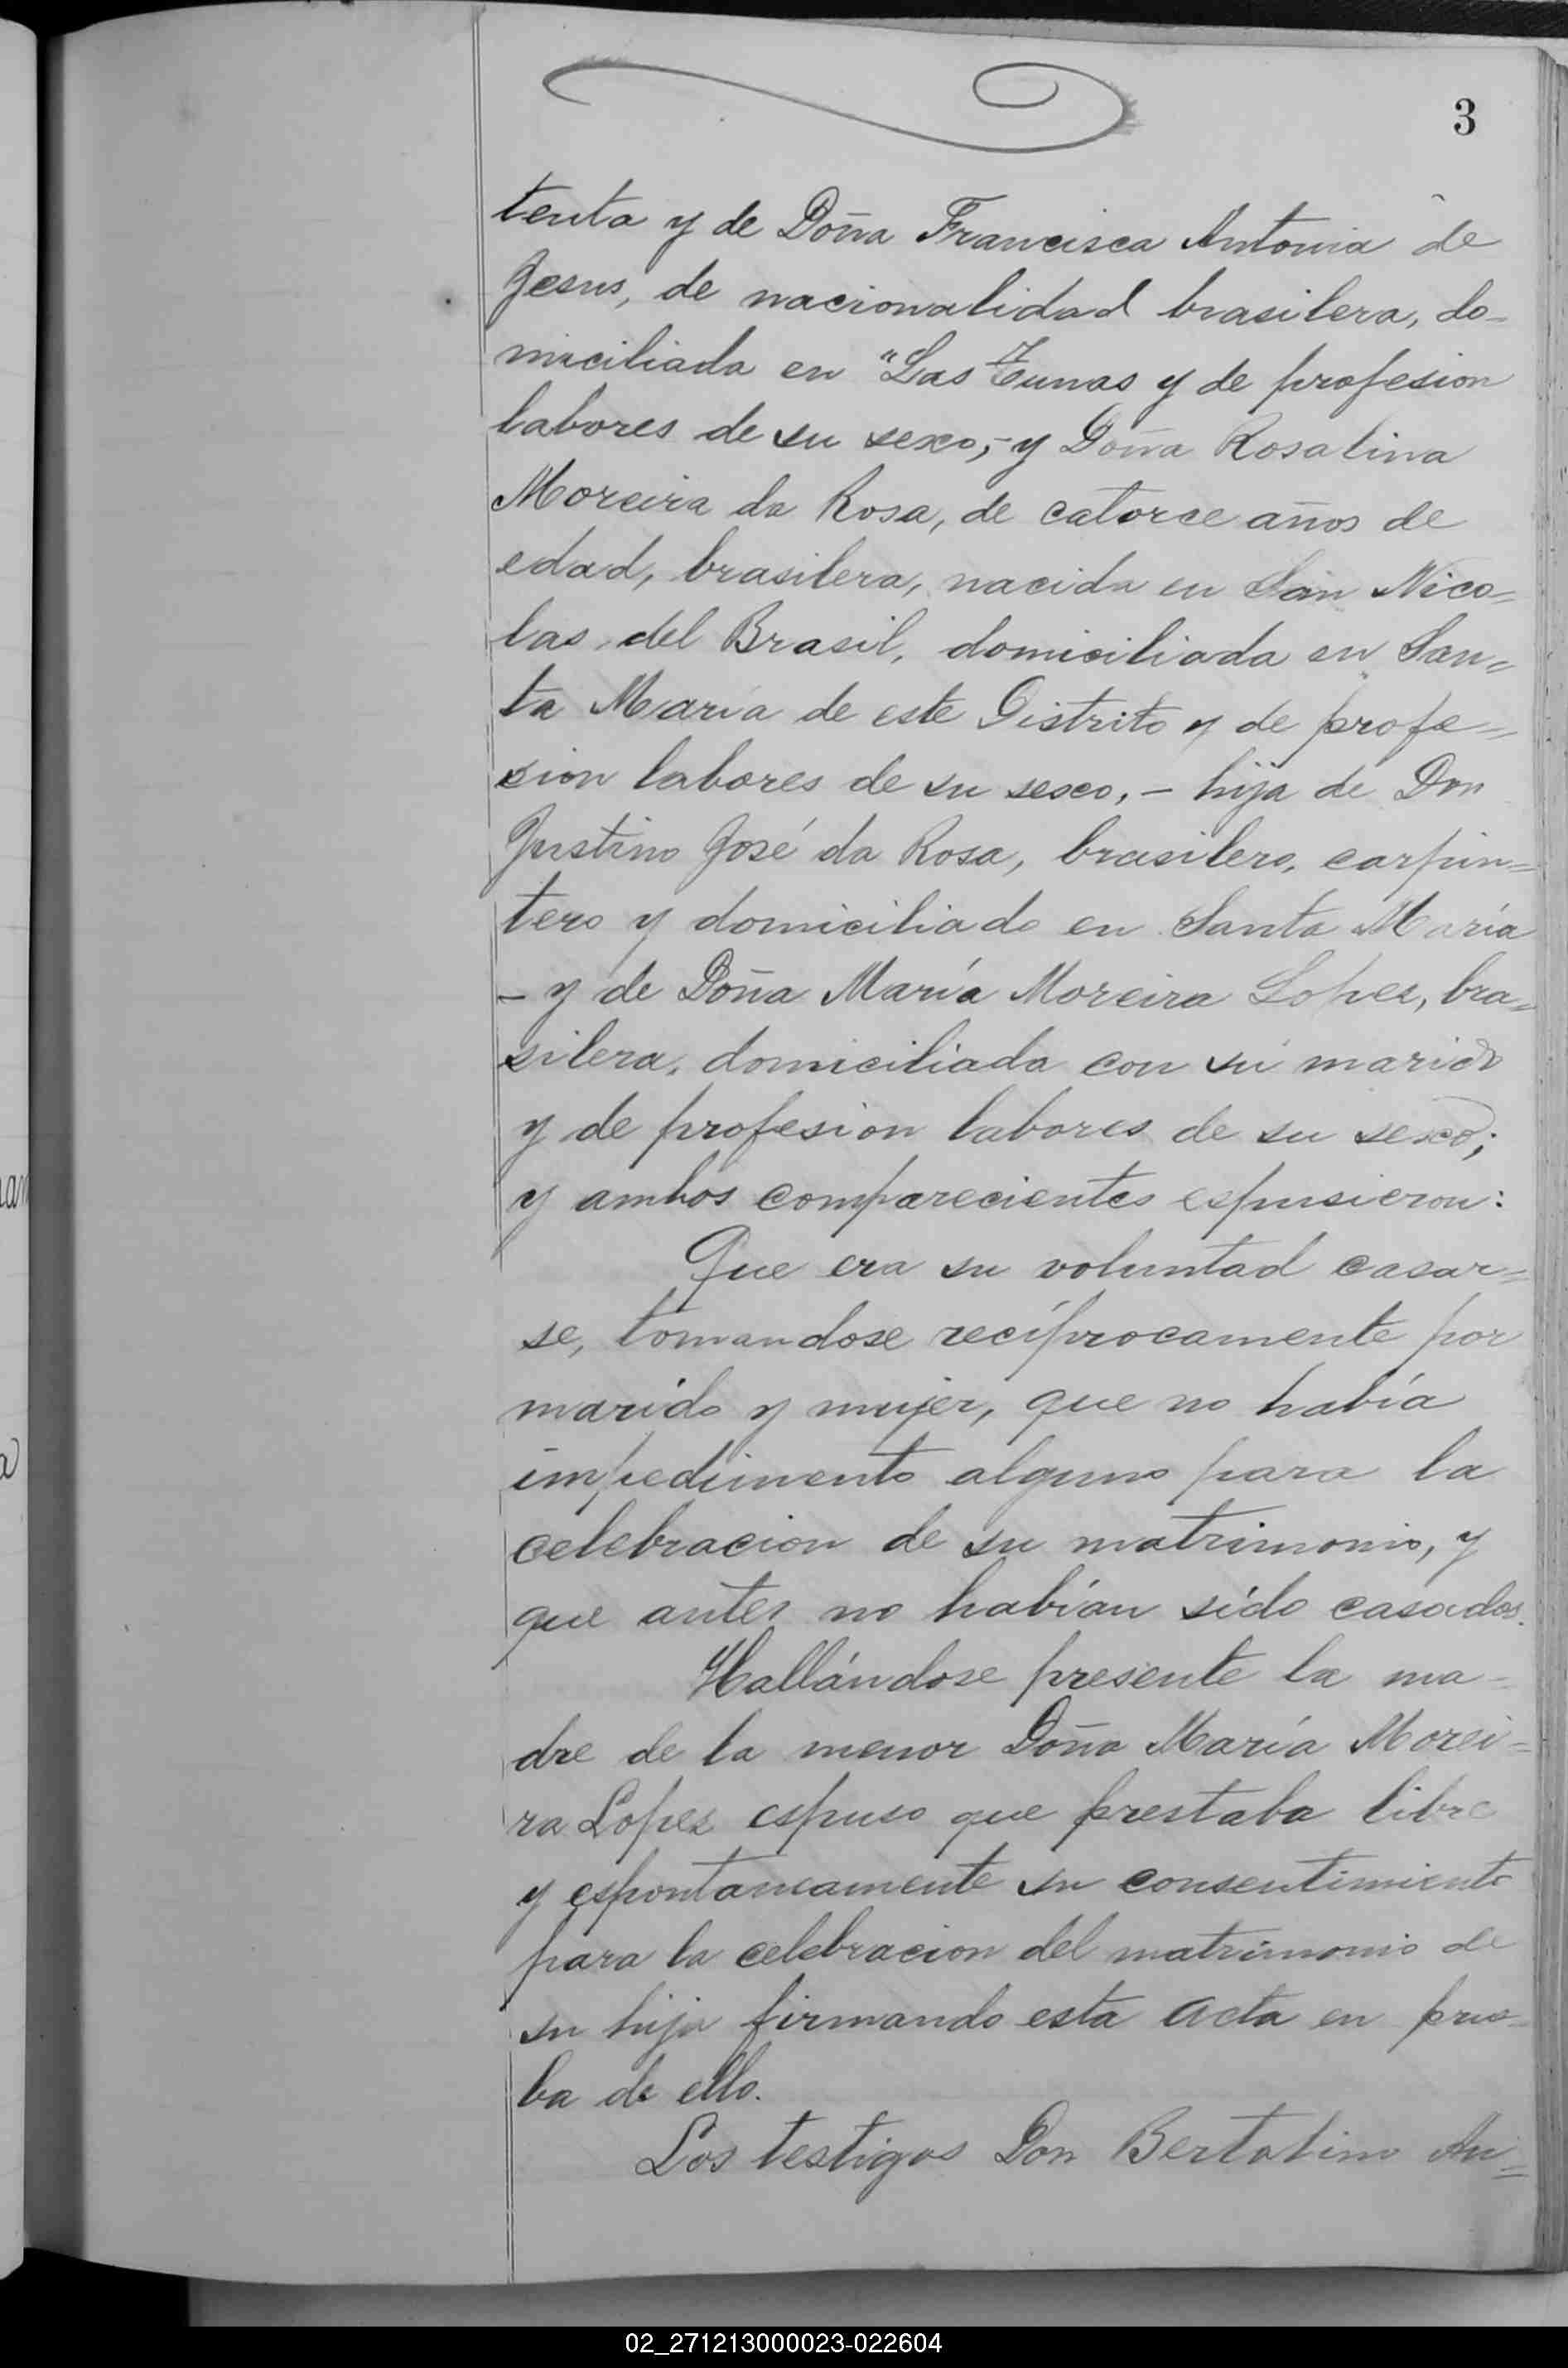 3
tenta y de Doña Francisca Antonia de
Jesus, de nacionalidad brasilera, do-
miciliada en "Las Tunas y de profesion
labores de su sexo,- y Doña Rosalina
Moreira da Rosa, de catorce años de
edad, brasilera, nacida en San Nico=
las del Brasil, domiciliada en San=
ta María de este Distrito y de profe=
sion labores de su sesco,- hija de Don
Justino José da Rosa, brasilero, carpin=
tero y domiciliado en Santa María
- y de Doña María Moreira Lopez, bra=
silera, domiciliada con su marido
y de profesion labores de su sesco;
y ambos comparecientes espusieron:
Que era su voluntad casar=
se, tomandose recíprocamente por
marido y mujer, que no había
impedimento alguno para la
celebracion de su matrimonio, y
que antes no habían sido casados.
Hallándose presente la ma-
dre de la menor Doña María Morei=
ra Lopez espuso que prestaba libre
y espontaneamente su consentimiento
para la celebracion del matrimonio de
su hija firmando esta acta en prue-
ba de ello.
Los testigos Don Bertolino An=
02_271213000023-022604